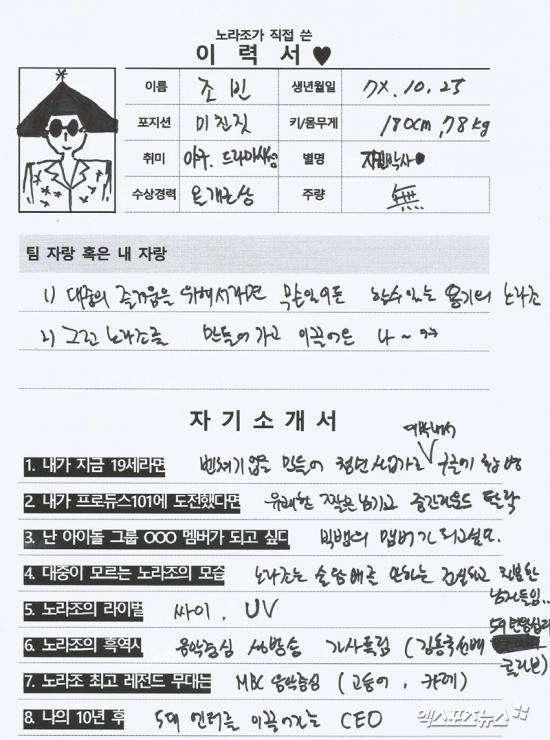 노라조가 직접 쓴
이 력 서 ♥
이름 조 빈 생년월일 7X. 10. 25
포지션 미친짓 키/몸무게 180cm, 78kg
취미 야구. 드라마시청 별명
수상경력 온개근상 주량 無
팀 자랑 혹은 내 자랑
1) 대중의 즐거움을 위해서라면 무슨일이든 할수있는 용기의 노라조
2) 그런 노라조를 만들어가고 이끌어온 나~
자 기 소 개 서
1. 내가 지금 19세라면 벤처기업을 만들어 청년사업가로
2. 내가 프로듀스101에 도전했다면 유쾌한 남기고 중간라운드 탈락
3. 난 아이돌 그룹 OOO 멤버가 되고 싶다 빅뱅의 멤버가 되고싶다.
4. 대중이 모르는 노라조의 모습 노라조는 술담배를 안하는 건실하고
남자들임...
5. 노라조의 라이벌 싸이, UV
6. 노라조의 흑역사 음악중심 생방송 가사틀림 (김동국선배
콜라보)
7. 노라조 최고 레전드 무대는 MBC 음악중심 (고등어, 카레)
8. 나의 10년 후 5대 엔터를 이끌어가는 CEO
엑스포츠뉴스